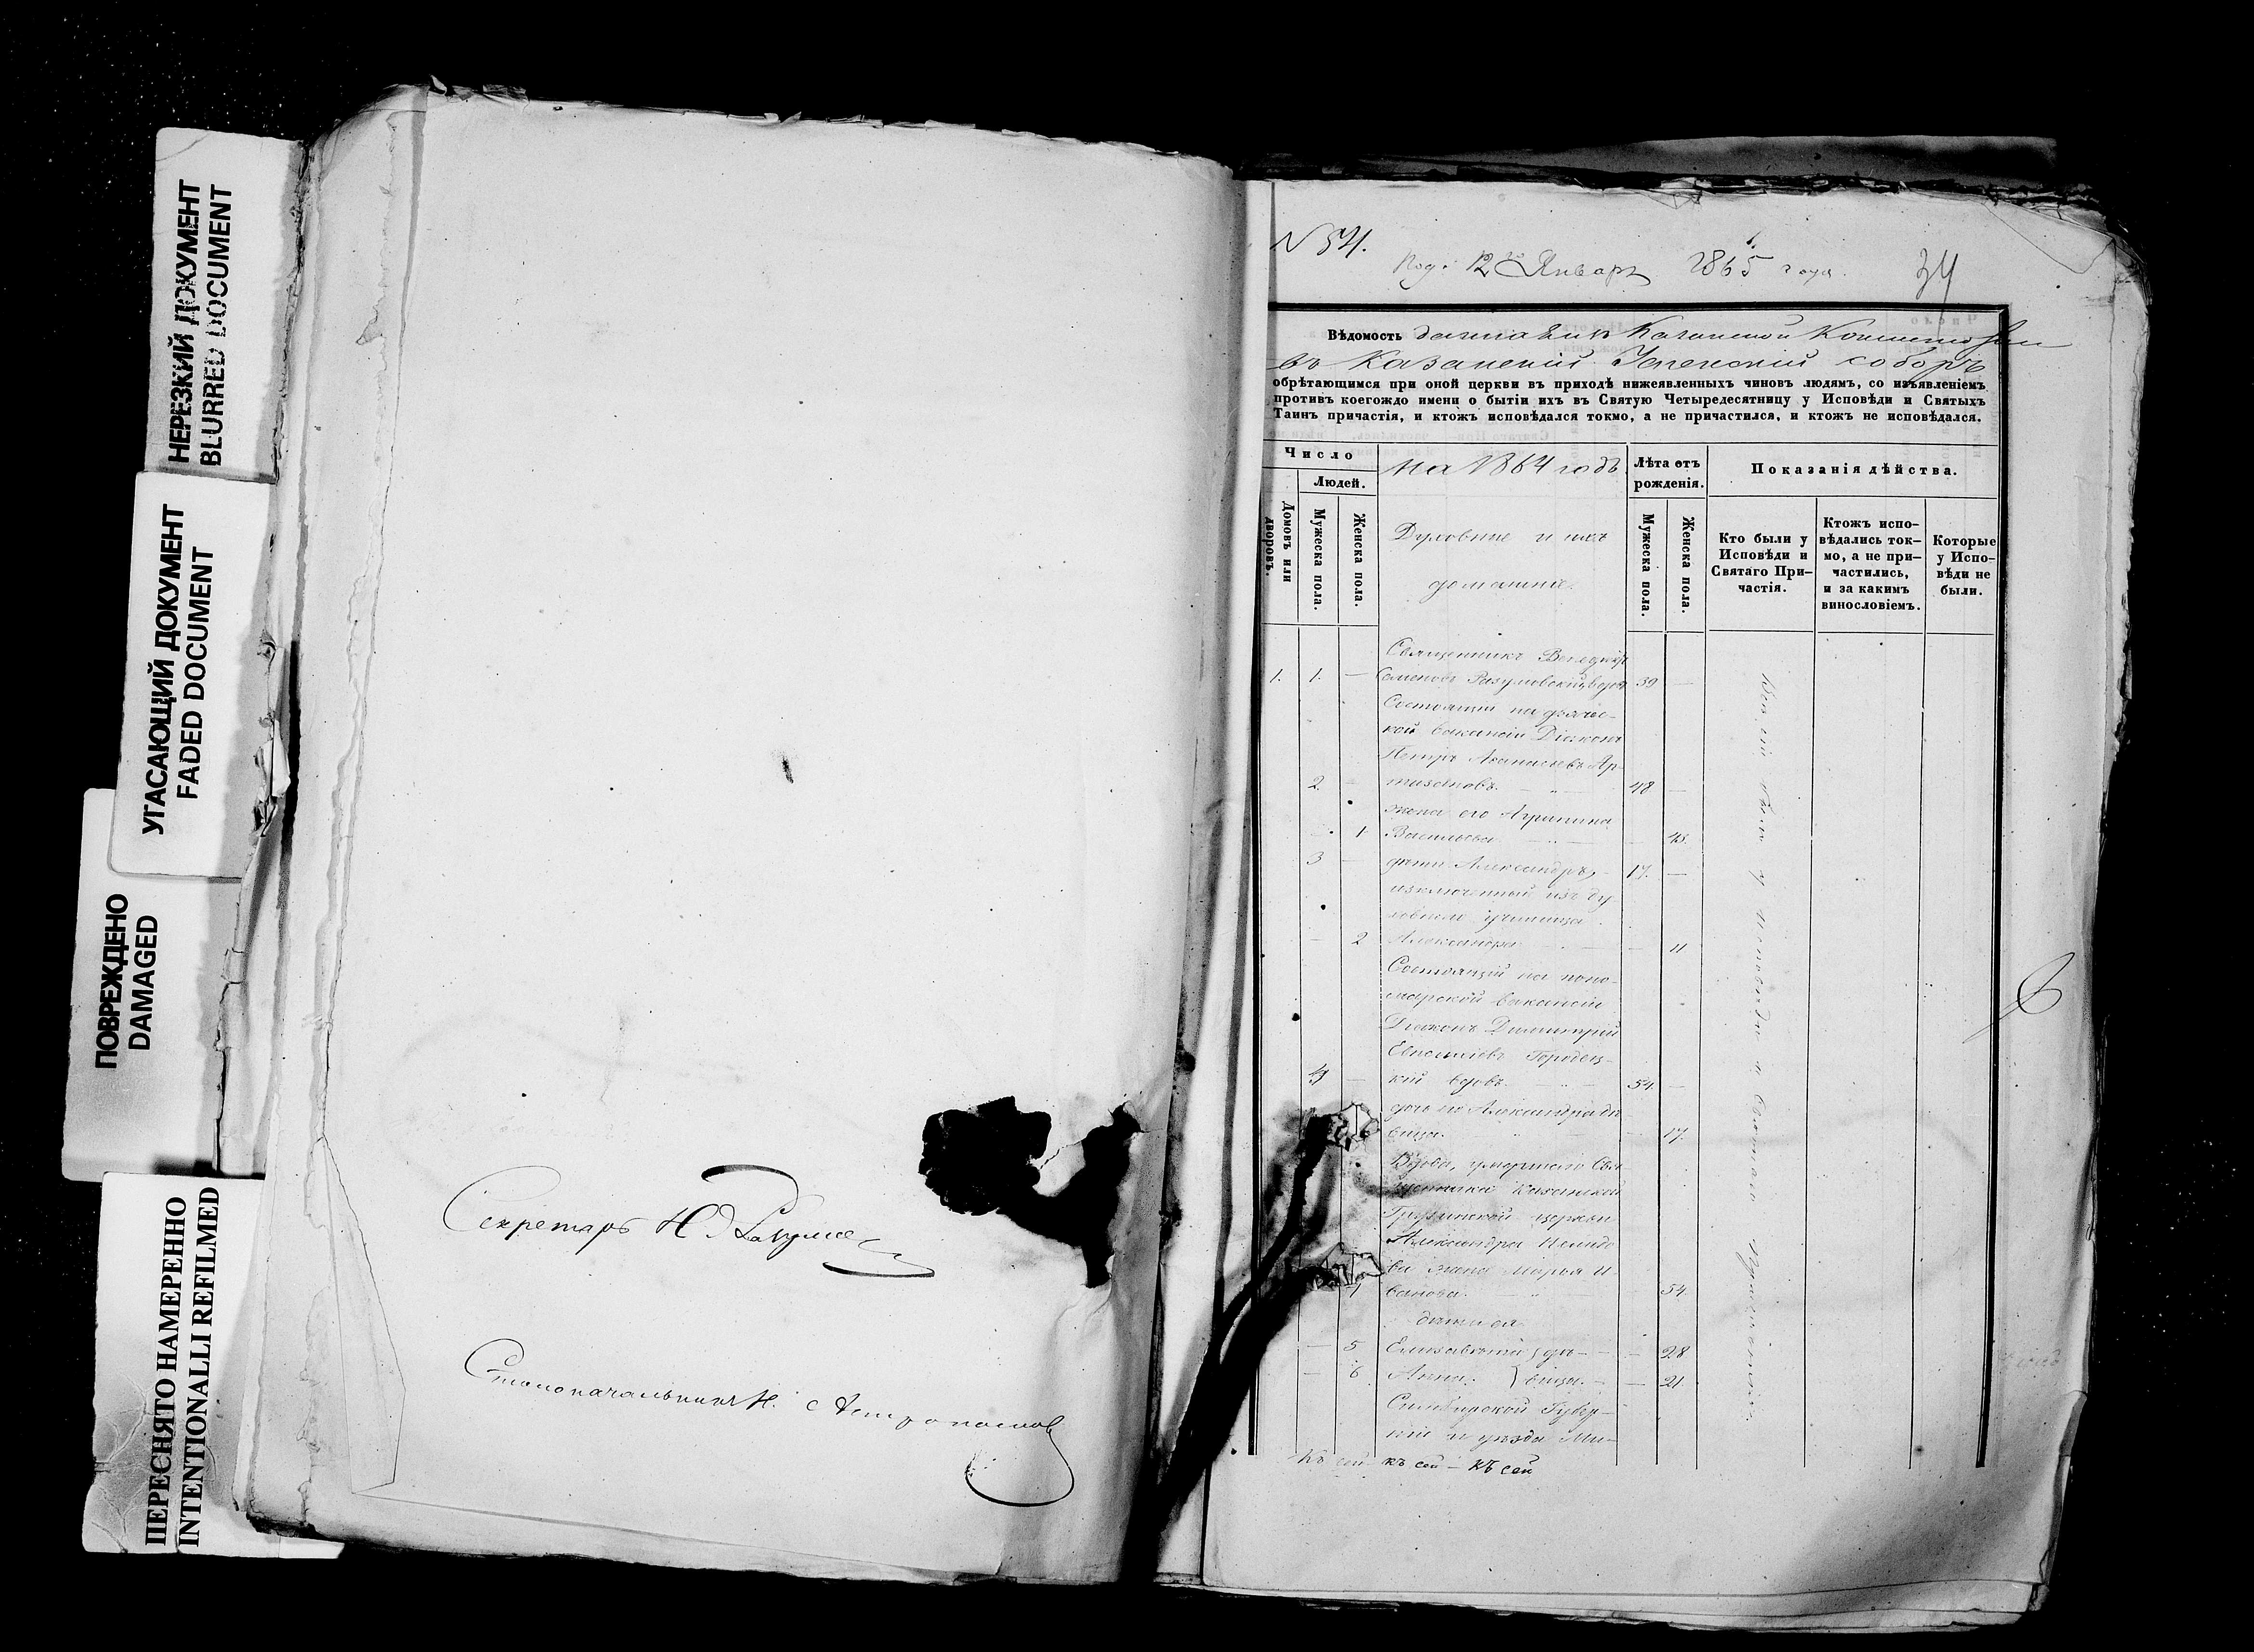 НЕРЕЗКИЙ ДОКУМЕНТ
BLURRED DOCUMENT
УГАСАЮЩИЙ ДОКУМЕНТ
FADED DOCUMENT
ПОВРЕЖДЕНО
DAMAGED
ПЕРЕСНЯТО НАМЕРЕННО
INTENTIONALLI REFILMED
Секретарь Н
Столоначальникъ Н.
N 54.
12 Январь 1865 года.
34
Вѣдомость
въ Казанский Успенский соборъ
обрѣтающимся при оной церкви въ приходѣ нижеявленныхъ чиновъ людямъ, со изъявленіемъ
противъ коегождо имени о бытіи ихъ въ Святую Четыредесятницу у Исповѣди и Святыхъ
Таинъ причастія, и ктожъ исповѣдался токмо, а не причастился, и ктожъ не исповѣдался.
Число
Людей.
Домовъ или дворовъ.
Мужеска пола.
Женска пола.
на 1864 годъ
Духовные и ихъ
домашніе.
Лѣта отъ
рожденія.
Мужеска пола.
Женска пола.
Показанія дѣйства.
Кто были у
Исповѣди и
Святаго При–
частія.
Ктожъ испо–
вѣдались ток–
мо, а не при–
частились,
и за какимъ
винословіемъ.
Которые
у Испо–
вѣди не
были.
Священникъ
1. 1. — Разумовскій, вдовъ 39 —
Состоящій на дьячес–
кой вакансіи Діаконъ
Петръ Ар–
2. — 48 —
жена его Агрипина
— 1 Васильева — 43.
3 — дѣти Александръ, 17. —
изключенный изъ ду
ховнаго училища
— 2 Александра — 11
Состоящій на поно–
марской вакансіи
Діаконъ Димитрій
Городец–
4 — кій вдовъ 54. —
дочь его Александра дѣ
вица. — 17.
Вдова, умершаго Свя–
щенника Казанской
Грузинской церкви
Александра
ва жена Марья И–
4 ванова. 54
дѣти ея
— 5 Елизавета } дѣ– — 28
— 6 Анна. } вицы. — 21.
Симбирской Губер–
ніи и уѣзда Ми–
Всѣ сіи были у исповѣди и святаго причастія.
Къ сей – къ сей – къ сей